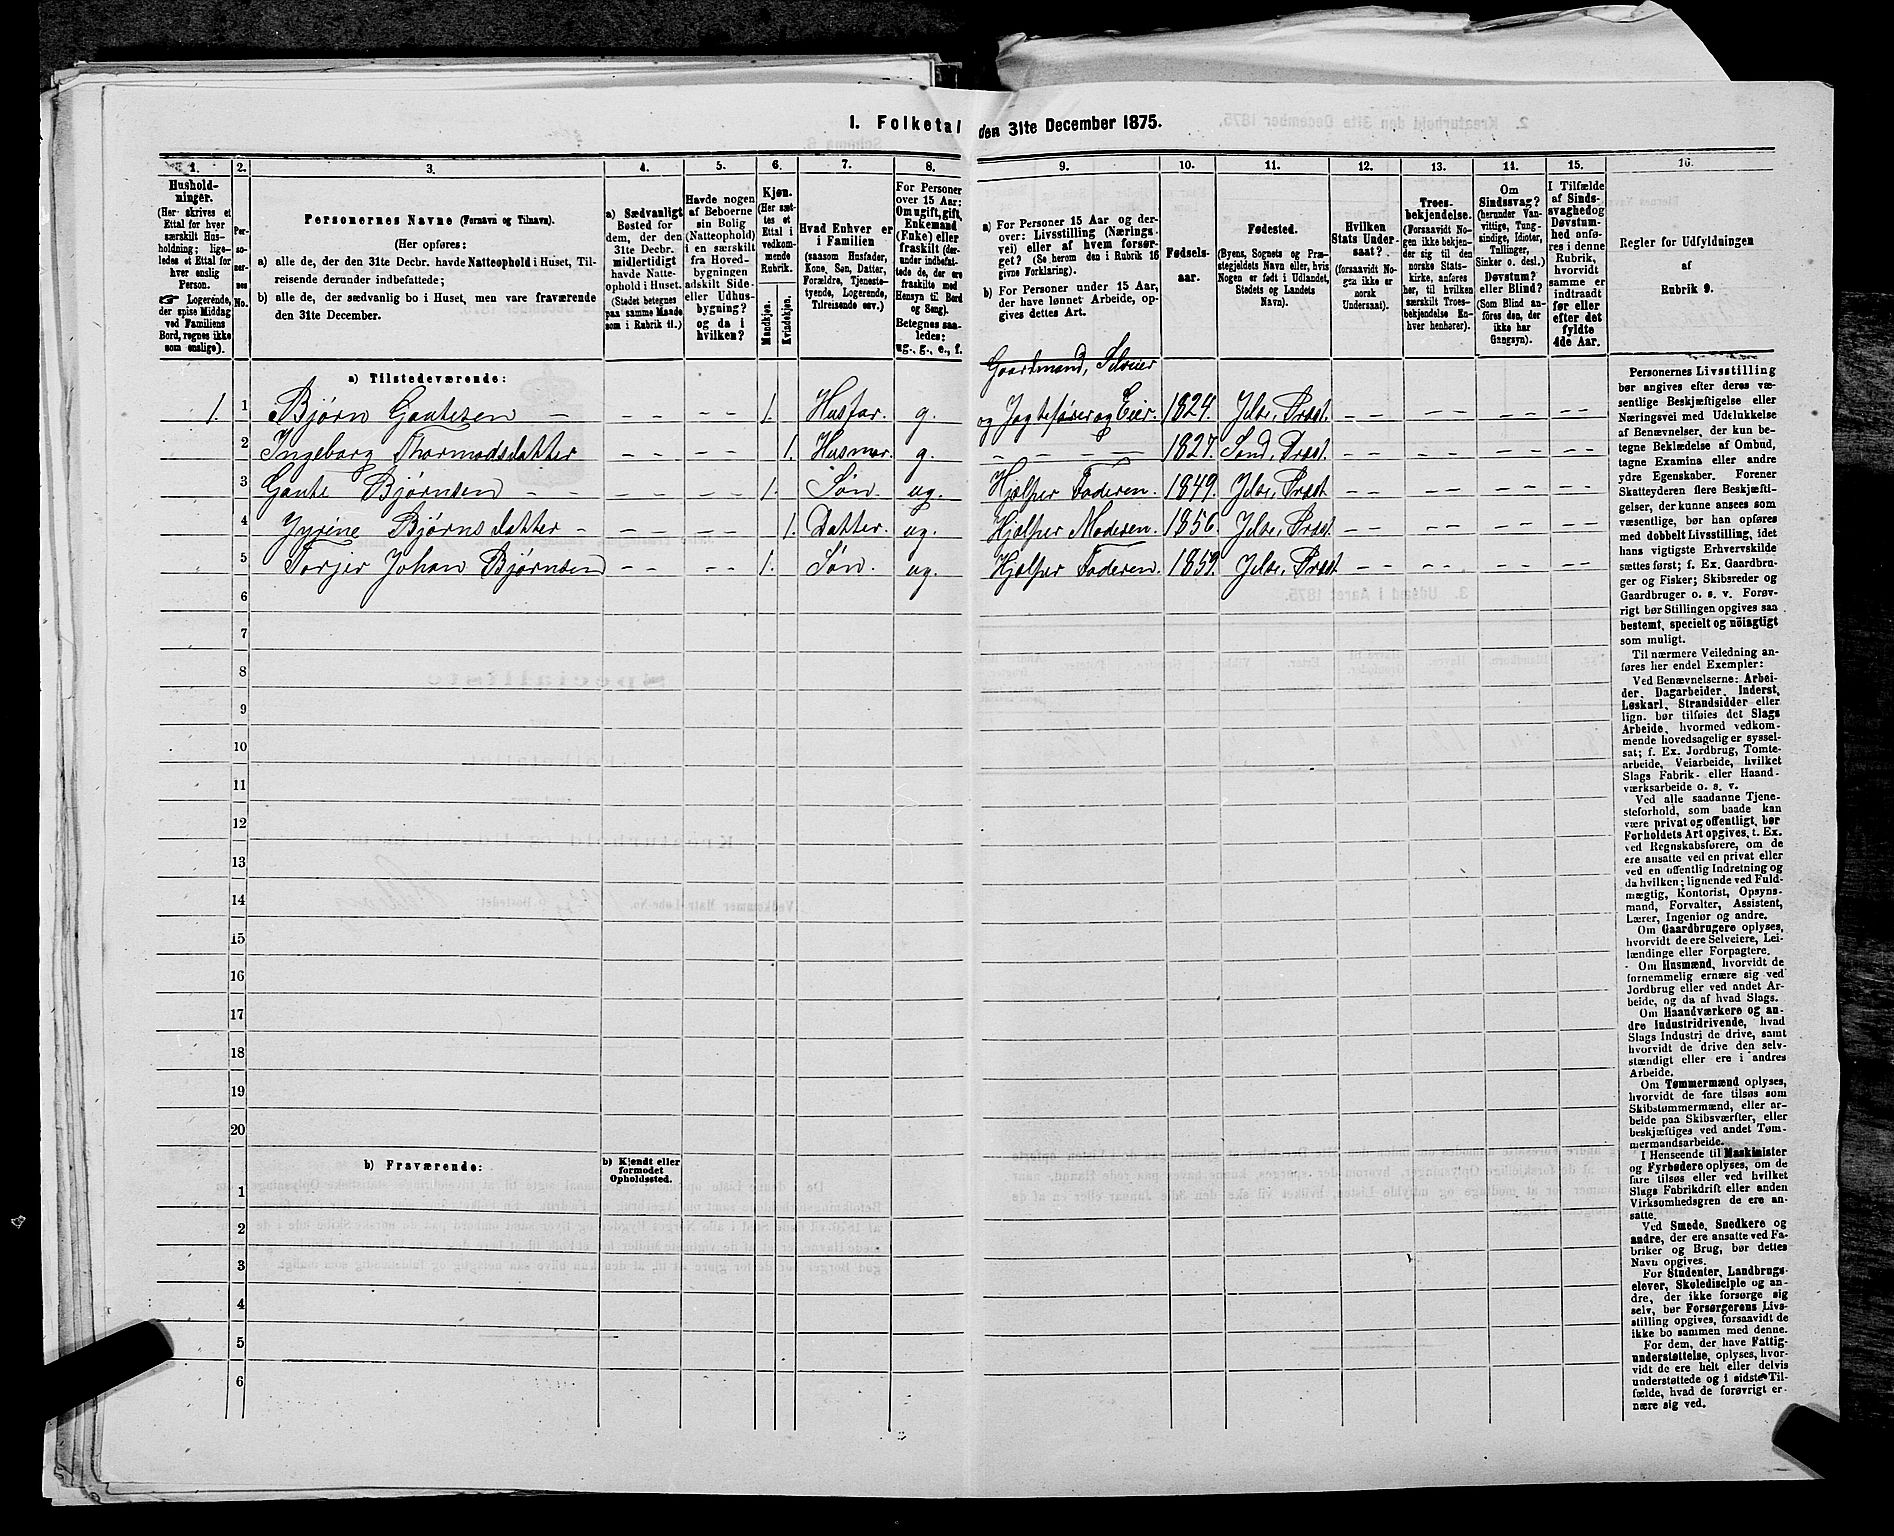 1. Folketal den 31te December 1875.
1.
Hushold-
ninger.
(Her skrives et
Ettal for hver
særskilt Hus-
holdning; lige-
ledes et Ettal for
hver enslig
Person.
☞ Logerende,
der spise Middag
ved Familiens
Bord, regnes ikke
som enslige).
2.
Per-
so-
ner-
nes
No.
3.
Personernes Navne (Fornavn og Tilnavn).
(Her opføres:
a) alle de, der den 31te Decbr. havde Natteophold i Huset, Til-
reisende derunder indbefattede;
b) alle de, der sædvanlig bo i Huset, men vare fraværende
den 31te December.
4.
a) Sædvanligt
Bosted for
dem, der den
31te Decbr.
midlertidigt
havde Natte-
ophold i Huset.
(Stedet betegnes
paa samme Maade
som i Rubrik 11.)
5.
Havde nogen
af Beboerne
sin Bolig
(Natteophold)
i en særskilt
fra Hoved-
bygningen
adskilt Side-
eller Udhus-
bygning?
og da i
hvilken?
6.
Kjøn.
(Her sæt-
tes et
Ettal i
vedkom-
mende
Rubrik.
Mandkjøn.
Kvindekjøn.
7.
Hvad Enhver er
i Familien
(saasom Husfader,
Kone, Søn, Datter,
Forældre, Tjeneste-
tyende, Logerende,
Tilreisende osv.)
8.
For Personer
over 15 Aar:
Om ugift, gift,
Enkemand
(Enke) eller
fraskilt (der-
under indbefat-
tede de, der ere
fraskilte med
Hensyn til Bord
og Seng).
Betegnes saa-
ledes:
ug., g., e., f.
9.
a) For Personer 15 Aar og der-
over: Livsstilling (Nærings-
vei) eller af hvem forsør-
get? (Se herom den i Rubrik 16
givne Forklaring).
b) For Personer under 15 Aar,
der have lønnet Arbeide, op-
gives dettes Art.
10.
Fødsels-
aar.
11.
Fødested.
(Byens, Sognets og Præ-
stegjeldets Navn, eller, hvis
Nogen er født i Udlandet,
Stedets og Landets
Navn).
12.
Hvilken
Stats Under-
saat?
(forsaavidt No-
gen ikke er
norsk
Undersaat).
13.
Troes-
bekjendelse.
(Forsaavidt No-
gen ikke bekjen-
der sig til den
norske Stats-
kirke, anføres
her, til hvilken
særskilt Troes-
bekjendelse En-
hver henhører).
14.
Om
Sindssvag?
(herunder Van-
vittige, Tung-
sindige, Idioter,
Tullinger,
Sinker o. desl.)
Døvstum?
eller Blind?
(Som Blind an-
føres den, der
ikke har
Gangsyn).
15.
I Tilfælde
af Sinds-
svaghed og
Døvstum-
hed anfø-
res i denne
Rubrik,
hvorvidt
samme er
indtraadt
før eller
efter det
fyldte
4de Aar.
16.
Regler for Udfyldningen
af
Rubrik 9.
a) Tilstedeværende:
Gaardmand, Selveier
1. 1 Bjørn Gautesen – – – – – 1. Husfar. g. og Jagtefører og Eier. 1824. Jelse, Præst. – – – – – – – –
2 Ingeborg Thormodsdatter – – – – 1. Husmor. g. – – – – – 1827. Sand, Præst. – – – – – – – –
3 Gaute Bjørnsen – – – – – – 1. Søn. ug. Hjælper Faderen. 1849. Jelse, Præst. – – – – – – – –
4 Jyrine Bjørnsdatter – – – – – 1. Datter. ug. Hjælper Moderen. 1856. Jelse, Præst. – – – – – – – –
5 Torjer Johan Bjørnsen – – – – 1. Søn. ug. Hjælper Faderen. 1859. Jelse, Præst. – – – – – – – –
6
7
8
9
10
11
12
13
14
15
16
17
18
19
20
b) Fraværende:
b) Kjendt eller
formodet
Opholdssted.
1
2
3
4
5
6
Personernes Livsstilling
bør angives efter deres væ-
sentlige Beskjæftigelse eller
Næringsvei med Udelukkelse
af Benævnelser, der kun be-
tegne Beklædelse af Ombud,
tagne Examina eller andre
ydre Egenskaber. Forener
Skatteyderen flere Beskjæfti-
gelser, der kunne ansees som
væsentlige, bør han opføres
med dobbelt Livsstilling, idet
hans vigtigste Erhvervskilde
sættes først; f. Ex. Gaardbru-
ger og Fisker; Skibsreder og
Gaardbruger o. s. v. Forøv-
rigt bør Stillingen opgives saa
bestemt, specielt og nøiagtigt
som muligt.
Til nærmere Veiledning an-
føres her endel Exempler:
Ved Benævnelserne: Arbei-
der, Dagarbeider, Inderst,
Løskarl, Strandsidder eller
lign. bør tilføies det Slags
Arbeide, hvormed vedkom-
mende hovedsagelig er syssel-
sat; f. Ex. Jordbrug, Tomte-
arbeide, Veiarbeide, hvilket
Slags Fabrik- eller Haand-
værksarbeide o. s. v.
Ved alle saadanne Tjene-
steforhold, som baade kan
være privat og offentligt, bør
Forholdets Art opgives, t. Ex.
ved Regnskabsførere, om de
ere ansatte ved en privat eller
ved en offentlig Indretning og
da hvilken; lignende ved Fuld-
mægtig, Kontorist, Opsyns-
mand, Forvalter, Assistent,
Lærer, Ingeniør og andre.
Om Gaardbrugere oplyses,
hvorvidt de ere Selveiere, Lei-
lændinge eller Forpagtere.
Om Husmænd, hvorvidt de
fornemmelig ernære sig ved
Jordbrug eller ved andet Ar-
beide, og da af hvad Slags.
Om Haandværkere og an-
dre Industridrivende, hvad
Slags Industri de drive, samt
hvorvidt de drive den selv-
stændigt eller ere i andres
Arbeide.
Om Tømmermænd oplyses,
hvorvidt de fare tilsøs som
Skibstømmermænd, eller ar-
beide paa Skibsværfter, eller
beskjæftiges ved andet Tøm-
mermandsarbeide.
I Henseende til Maskinister
og Fyrbødere oplyses, om de
fare tilsøs eller ved hvilket
Slags Fabrikdrift eller anden
Virksomhedsgren de ere an-
satte.
Ved Smede, Snedkere og
andre, der ere ansatte ved Fa-
briker og Brug, bør dettes
Navn opgives.
For Studenter, Landbrugs-
elever, Skoledisciple og an-
dre, der ikke forsørge sig
selv, bør Forsørgerens Livs-
stilling opgives, forsaavidt de
ikke bo sammen med denne.
For dem, der have Fattig-
understøttelse, oplyses, hvor-
vidt de ere helt eller delvis
understøttede og i sidste Til-
fælde, hvad de forøvrigt er-
nære sig ved.